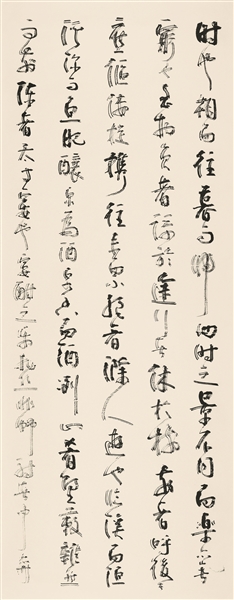 時也朝而往暮而歸四時之景不同而樂亦無
窮也至於負者歌於途行者休於樹前者呼後者
應傴僂提攜往來而不絕者滁人遊也臨溪而漁
溪深而魚肥釀泉為酒泉香而酒洌山肴野蔌雜然
而前陳者太守宴也宴酣之樂非絲非竹射者中弈